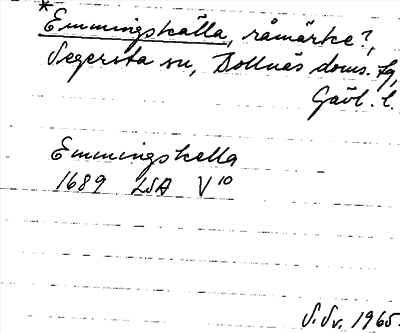 *
Emmingskälla, råmärke?,
Segersta sn, Bollnäs doms. fg,
Gävl. l.
Emmingskella
1689 LSA V10
S. Sv. 1965.